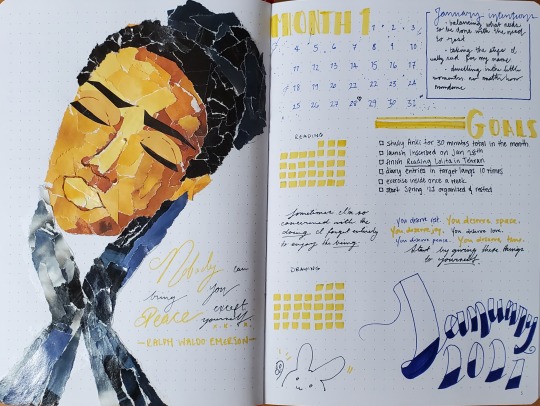 Nobody can
bring you
Peace except
yourself
R.W.E.
~RALPH WALDO EMERSON~
MONTH 1
1 2 3
4 5 6 7 8 9 10
11 12 13 14 15 16 17
18 19 20 21 22 23 24
25 26 27 28 29 30 31
January intentions
- balancing what needs
to be done with the need
to rest
- taking the steps I
really need for my name
- dwelling in the little
moments no matter how
mundane
GOALS
study Anki for 30 minutes total in the month
launch inscribed on Jan 28th
finish Reading Lolita in Tehran
diary entries in target langs 10 times
exercise inside once a week
start Spring '21 organized & rested
READING
Sometimes I'm so
concerned with the
doing I forget entirely
to enjoy the being.
you deserve rest. You deserve space.
You deserve joy. You deserve love.
You deserve peace. You deserve time.
Start by giving these things
to yourself.
DRAWING
January
2021